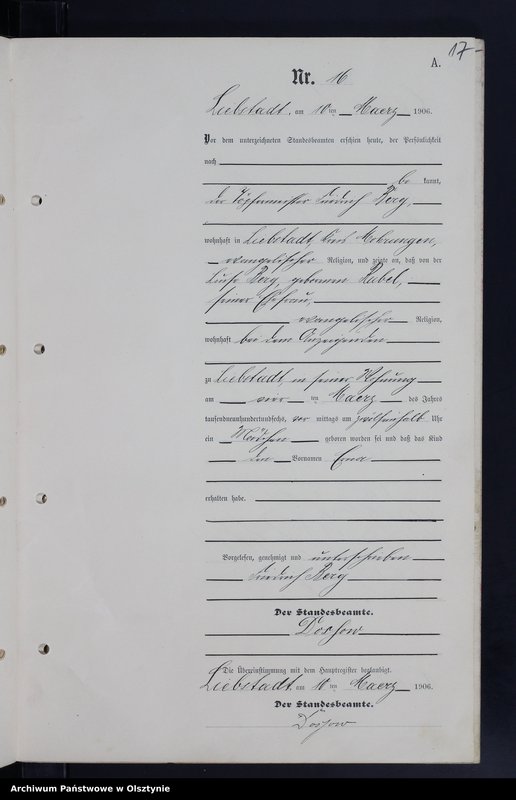 17-
A.
Nr. 16
Liebstadt, am 10 ten Maerz 1906.
Vor dem unterzeichneten Standesbeamten erschien heute, der Persönlichkeit
nach
be kannt,
der Töpfermeister Friedrich Berg,
wohnhaft in Liebstadt, Kreis Mohrungen,
evangelischer Religion, und zeigte an, daß von der
Luise Berg, geborenen Habel,
seiner Ehefrau,
evangelischer Religion,
wohnhaft bei dem Anzeigenden
zu Liebstadt, in seiner Wohnung
am vier ten Maerz des Jahres
tausendneunhundertundsechs, vor mittags um zwölfeinhalb Uhr
ein Mädchen geboren worden sei und daß das Kind
den Vornamen Ema
erhalten habe.
Vorgelesen, genehmigt und unterschrieben
Friedrich Berg
Der Standesbeamte.
Dossow
Die Übereinstimmung mit dem Hauptregister beglaubigt.
Liebstadt, am 10 ten Maerz 1906.
Der Standesbeamte.
Dossow
Archiwum Państwowe w Olsztynie